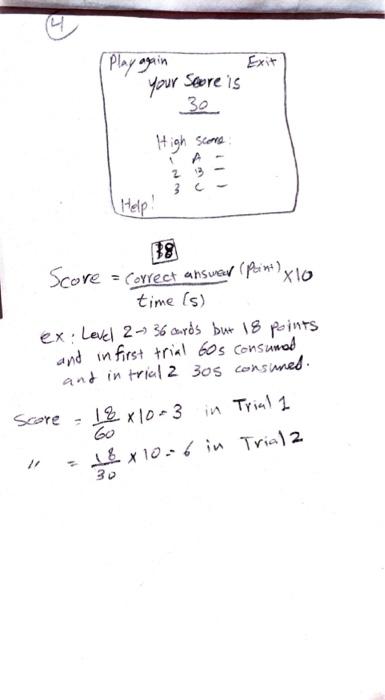 4
Play again Exit
Your Score is
30
High score:
1 A -
2 B -
3 C -
Help!
Score = correct answer (Point) x10
time (s)
ex: Level 2 → 36 cards but 18 points
and in first trial 60s consumed
and in trial 2 30s consumed.
Score = 18/60 x 10 = 3 in Trial 1
" = 18/30 x 10 = 6 in Trial 2